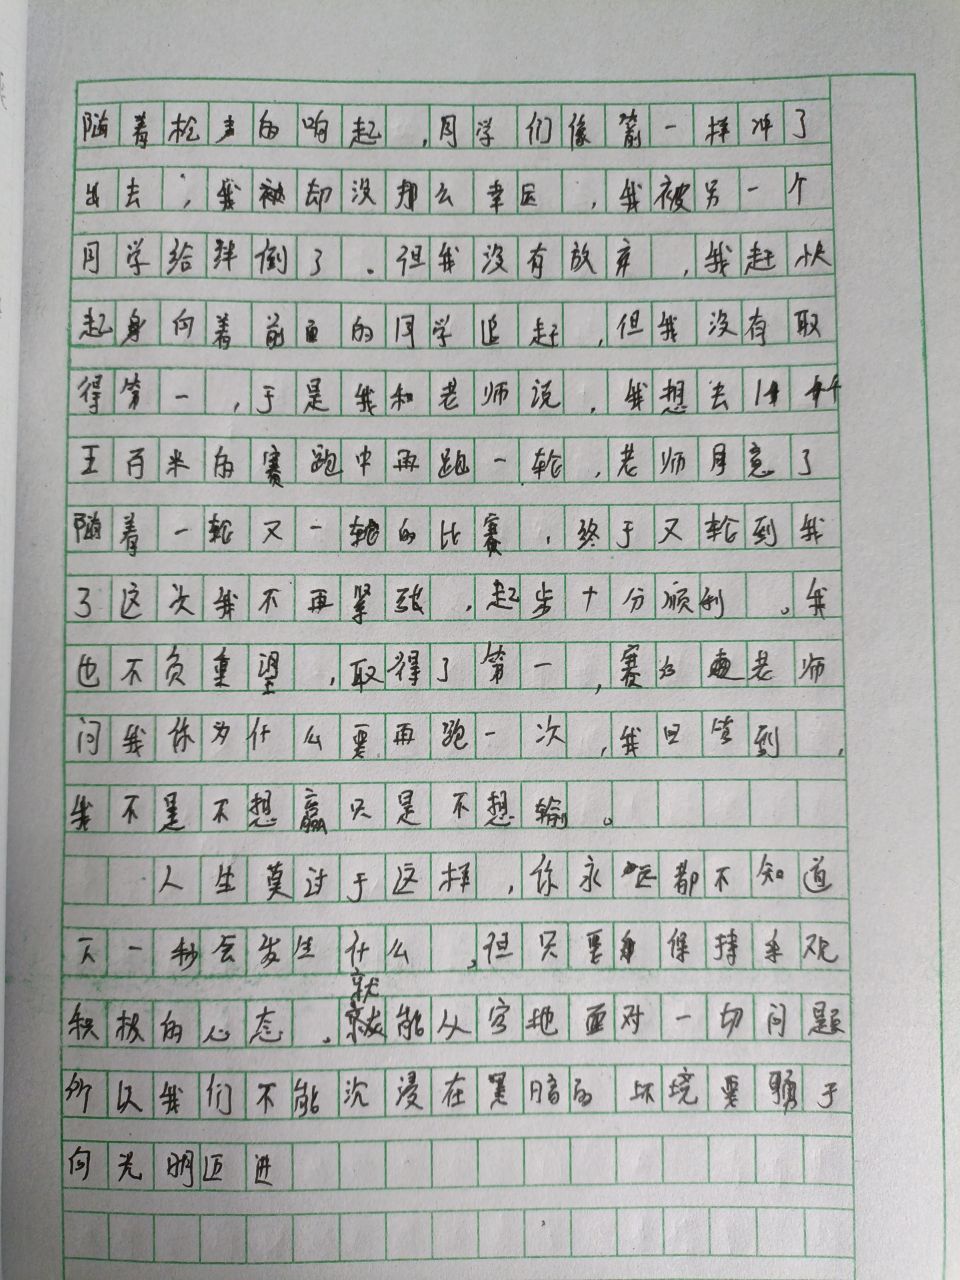 随着枪声的响起，同学们像箭一样冲了
出去，我却没那么幸运，我被另一个
同学给绊倒了。但我没有放弃，我赶快
起身向着前面的同学追赶，但我没有取
得第一，于是我和老师说，我想去
五百米的赛跑中再跑一轮，老师同意了
随着一轮又一轮的比赛，终于又轮到我
了这次我不再紧张，起步十分顺利。我
也不负重望，取得了第一，赛后老师
问我你为什么要再跑一次，我回答到，
我不是不想赢只是不想输。
人生莫过于这样，你永远都不知道
下一秒会发生什么，但只要保持乐观
积极的心态，就能从容地面对一切问题
所以我们不能沉浸在黑暗的环境要勇于
向光明迈进